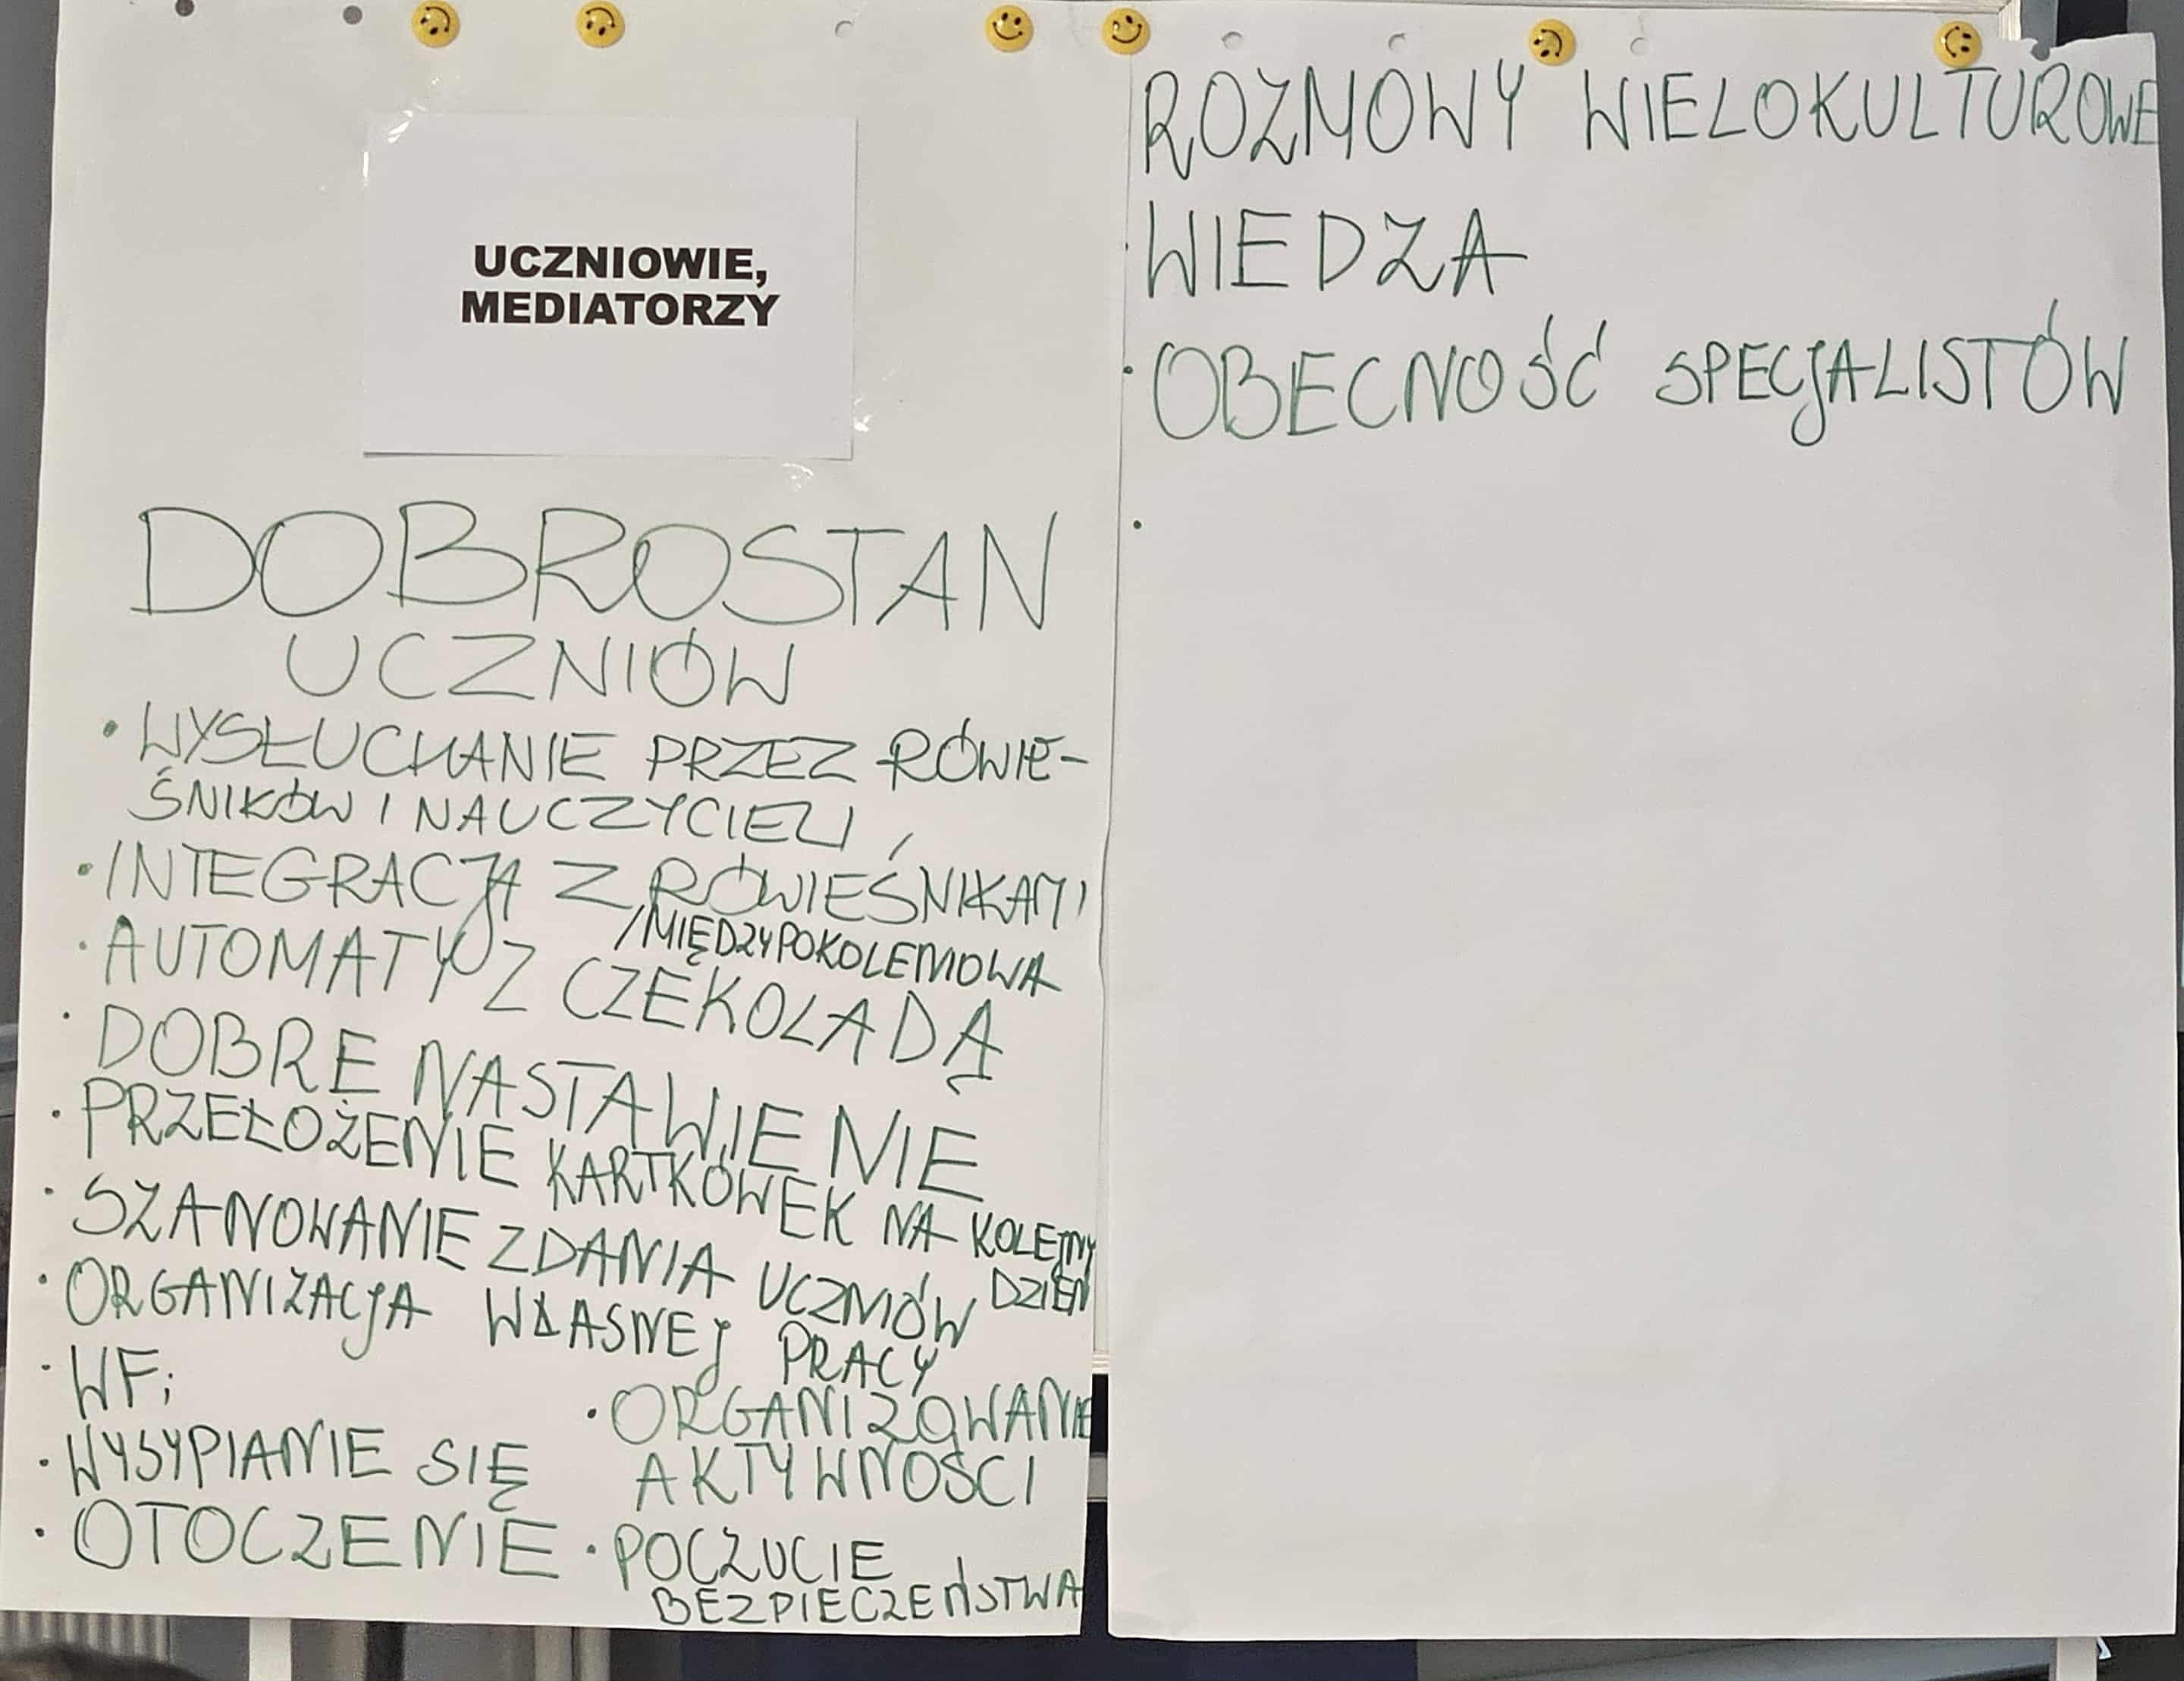 UCZNIOWIE,
MEDIATORZY
DOBROSTAN
UCZNIÓW
• WYSŁUCHANIE PRZEZ RÓWIE-
ŚNIKÓW I NAUCZYCIELI
• INTEGRACJA Z RÓWIEŚNIKAMI
/MIĘDZYPOKOLENIOWA
• AUTOMATY Z CZEKOLADĄ
• DOBRE NASTAWIENIE
• PRZEŁOŻENIE KARTKÓWEK NA KOLEJNY
DZIEŃ
• SZANOWANIE ZDANIA UCZNIÓW
• ORGANIZACJA WŁASNEJ PRACY
• WF;
• WYSYPIANIE SIĘ
• OTOCZENIE
• ORGANIZOWANIE
AKTYWNOŚCI
• POCZUCIE
BEZPIECZEŃSTWA
ROZMOWY WIELOKULTUROWE
• WIEDZA
• OBECNOŚĆ SPECJALISTÓW
•